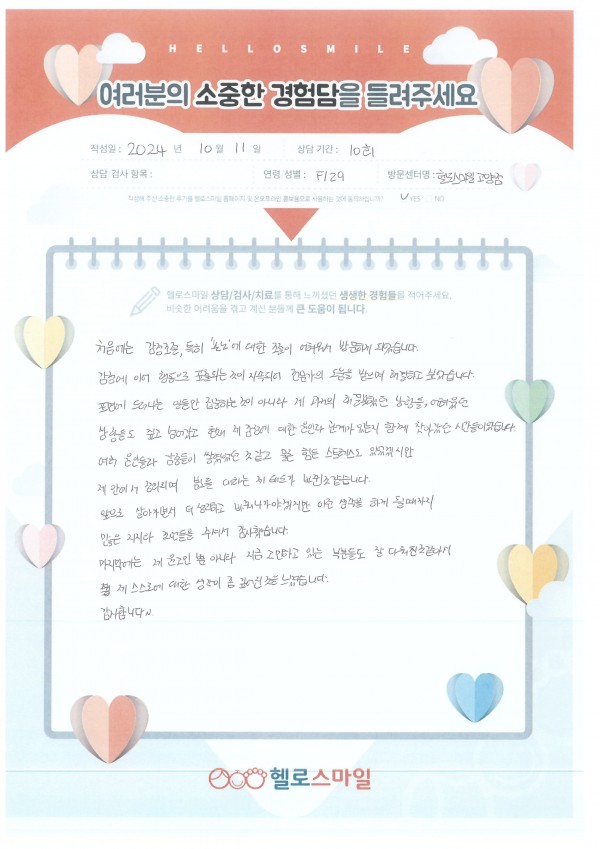 HELLOSMILE
여러분의 소중한 경험담을 들려주세요
작성일 : 2024 년 10 월 11 일 상담 기간 : 10회
상담 검사 항목 : 연령 성별 : F/29 방문센터명 : 헬로스마일 고양점
작성해 주신 소중한 후기를 헬로스마일 홈페이지 및 온오프라인 홍보용으로 사용하는 것에 동의하십니까? ✓YES NO
헬로스마일 상담/검사/치료를 통해 느끼셨던 생생한 경험들을 적어주세요.
비슷한 어려움을 겪고 계신 분들께 큰 도움이 됩니다.
처음에는 감정조절, 특히 '분노'에 대한 조절이 어려워서 방문하게 되었습니다.
감정에 이어 행동으로 표출되는 것이 지속되어 전문가의 도움을 받으며 해결하고 보았습니다.
표면에 드러나는 행동만 집중하는 것이 아니라 제 과거의 했었던 상황들, 어려웠던
상황들도 짚고 넘어갔고 현재 제 감정에 대한 원인과 한계가 있는지 함께 찾아갔던 시간들이었습니다.
여러 원인들과 감정들이 쌓여있던 것 같고 물론 힘든 스트레스도 있었겠지만
제 안에서 정리되며 분노를 대하는 제 태도가 바뀐 것 같습니다.
앞으로 살아가면서 더 노력하고 바뀌나가야겠지만 이런 생각을 하게 될 때까지
많은 지지와 조언들을 주셔서 감사했습니다.
마지막에는 제 분노 뿐 아니라 지금 고민하고 있는 부분들도 잘 다뤄진 것 같아서
제 스스로에 대한 생각이 좀 깊어진 것을 느꼈습니다.
감사합니다~
헬로스마일